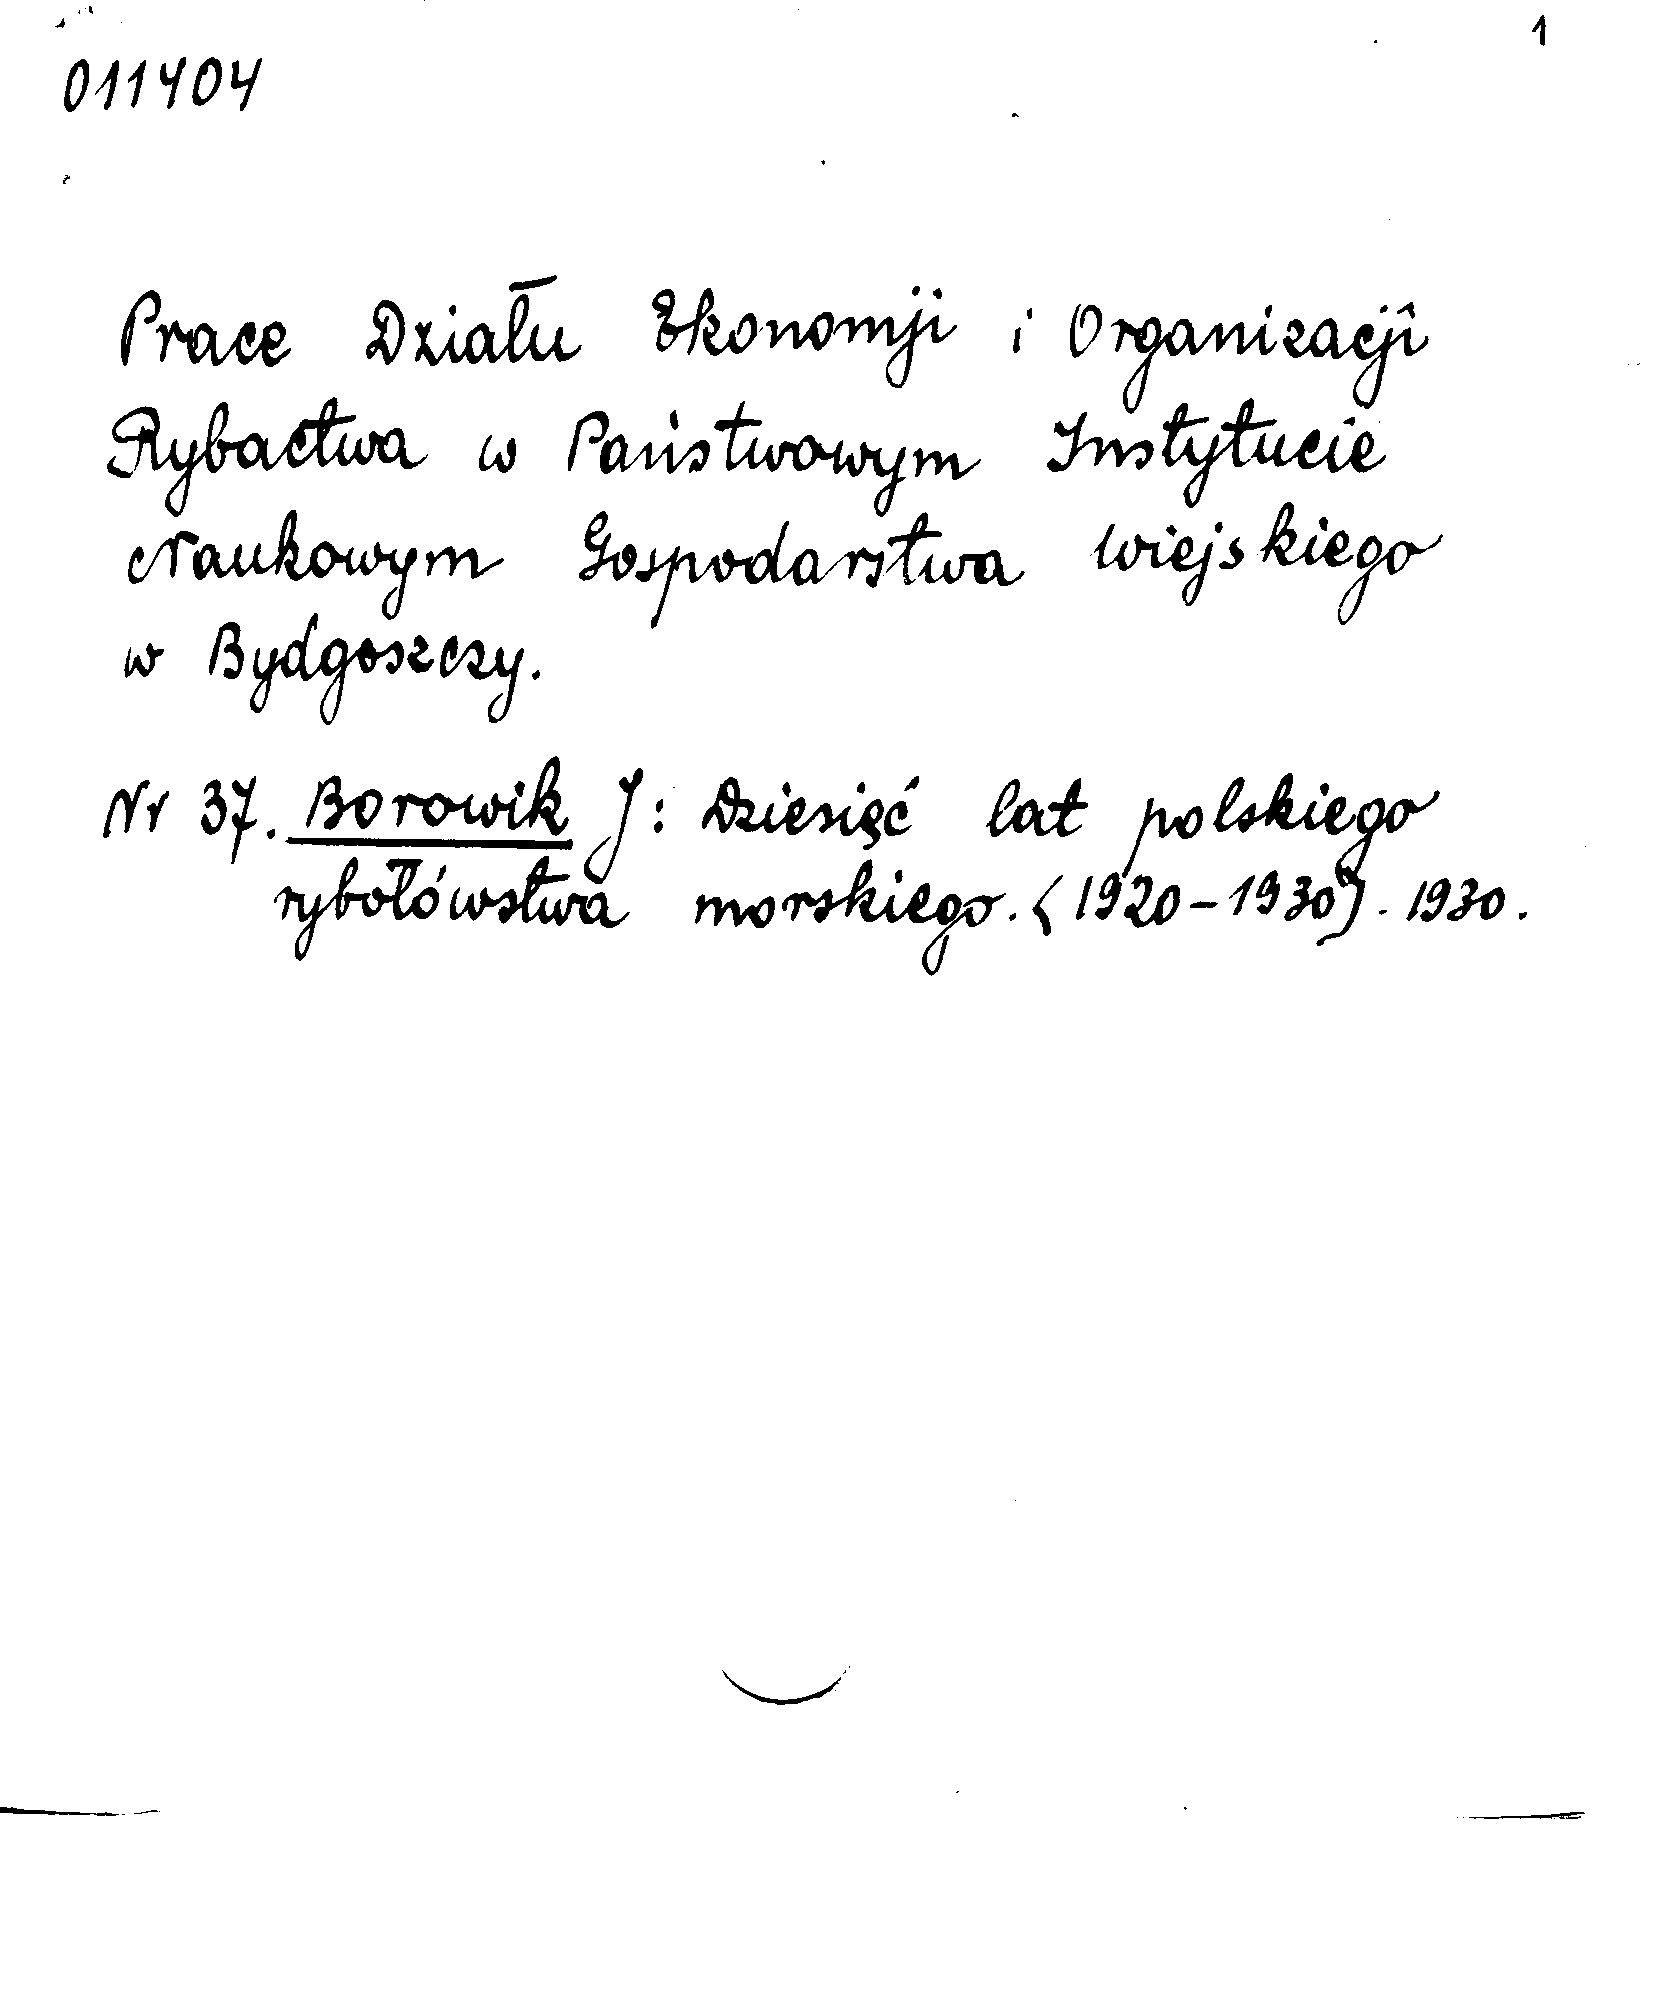 1
011404
Prace Działu Ekonomji i Organizacji
Rybactwa w Państwowym Instytucie
Naukowym Gospodarstwa wiejskiego
w Bydgoszczy.
Nr 37. Borowik J: Dziesięć lat polskiego
rybołówstwa morskiego. (1920-1930). 1930.